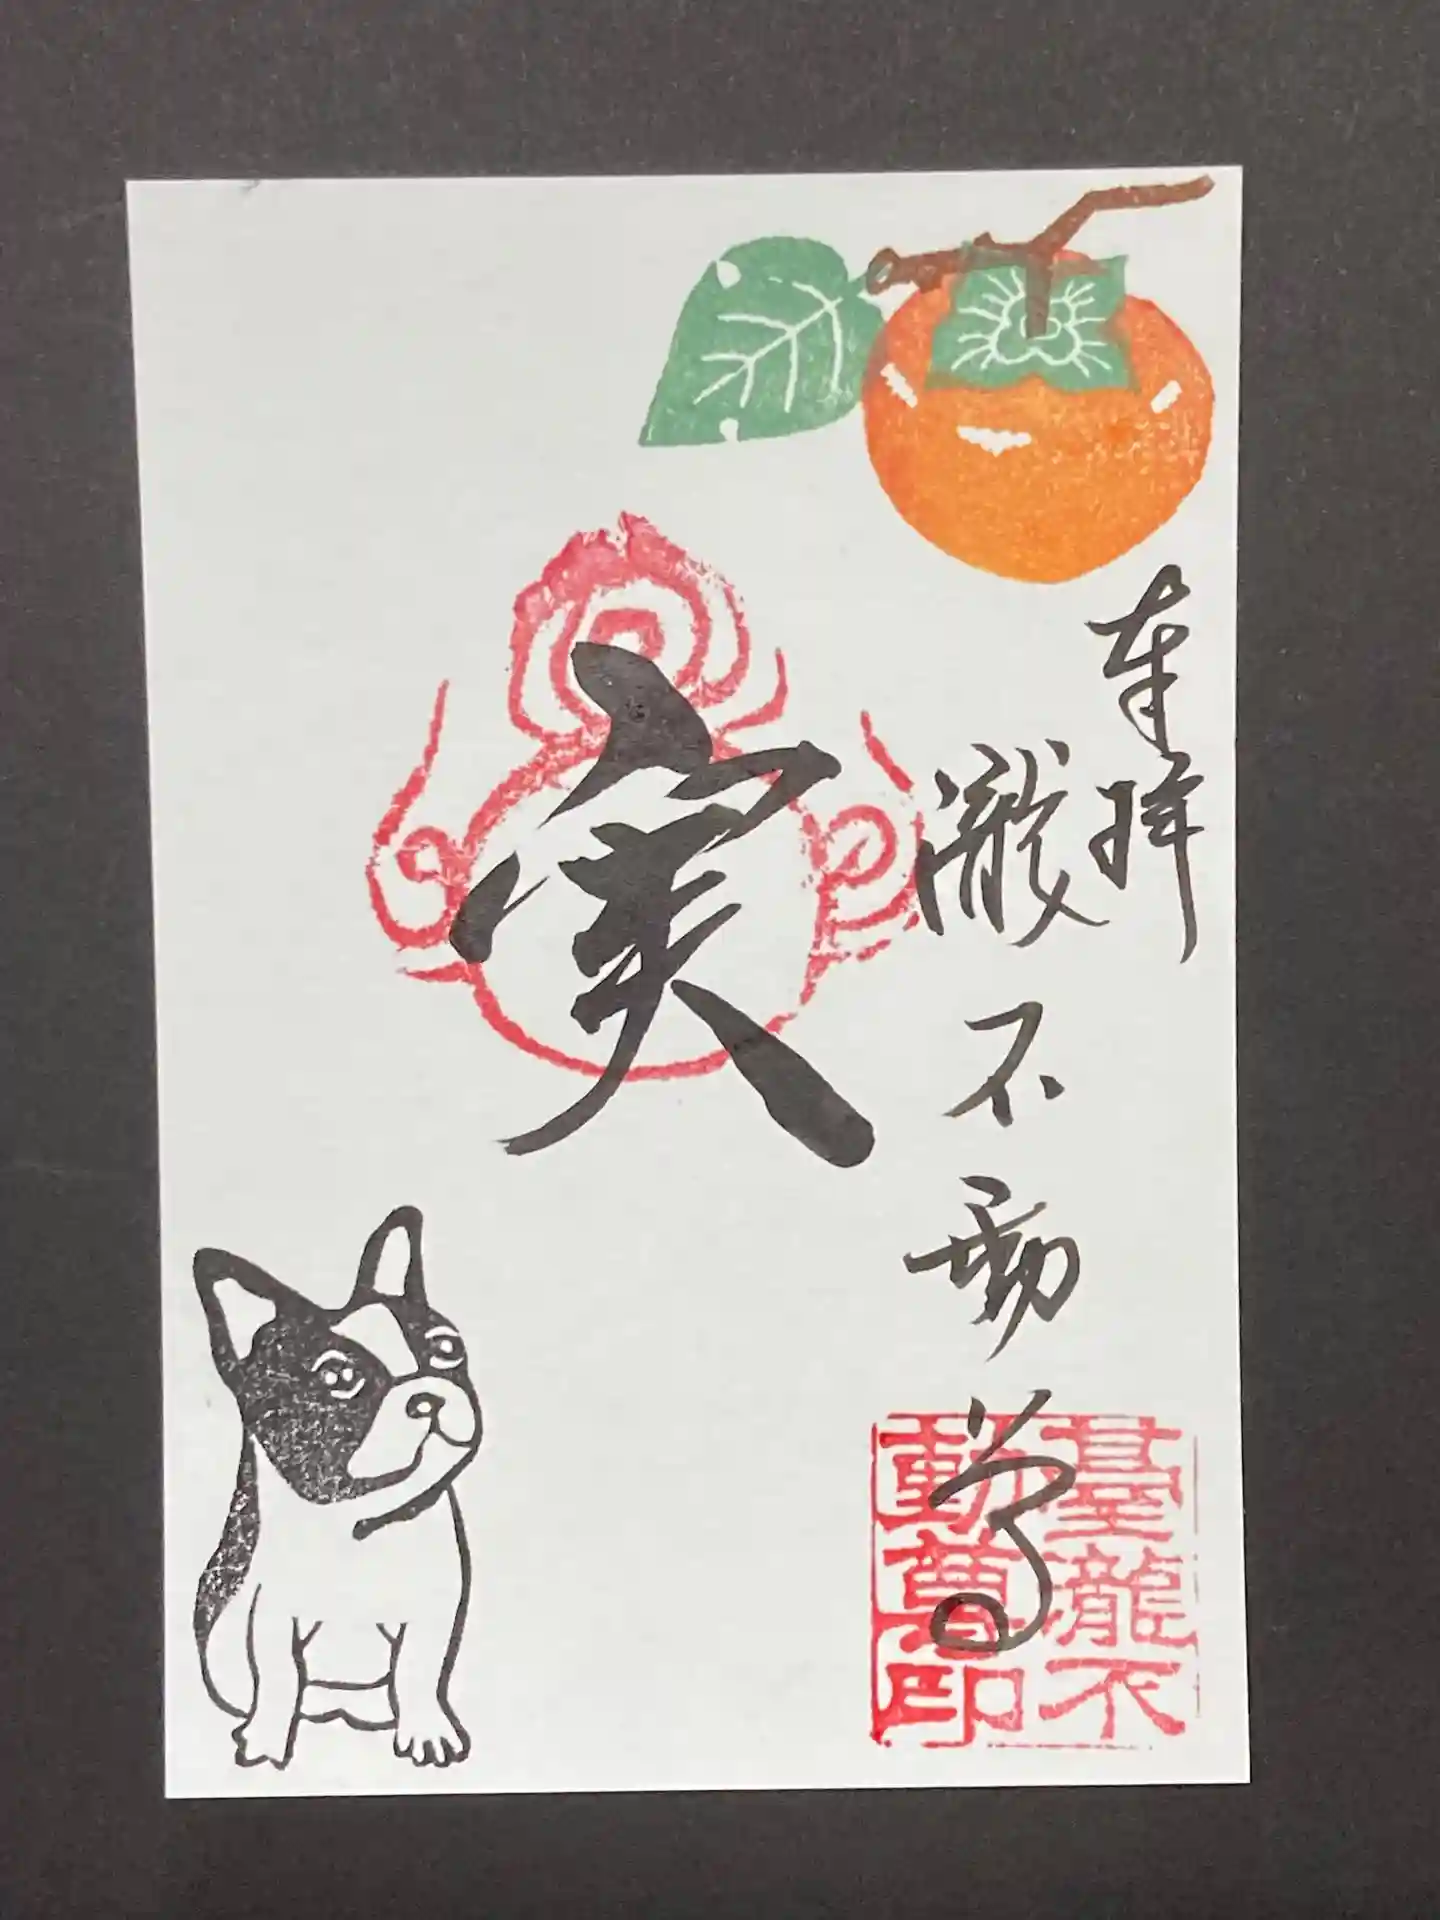 奉拝
瀧不動堂
実
臺瀧不
動尊印